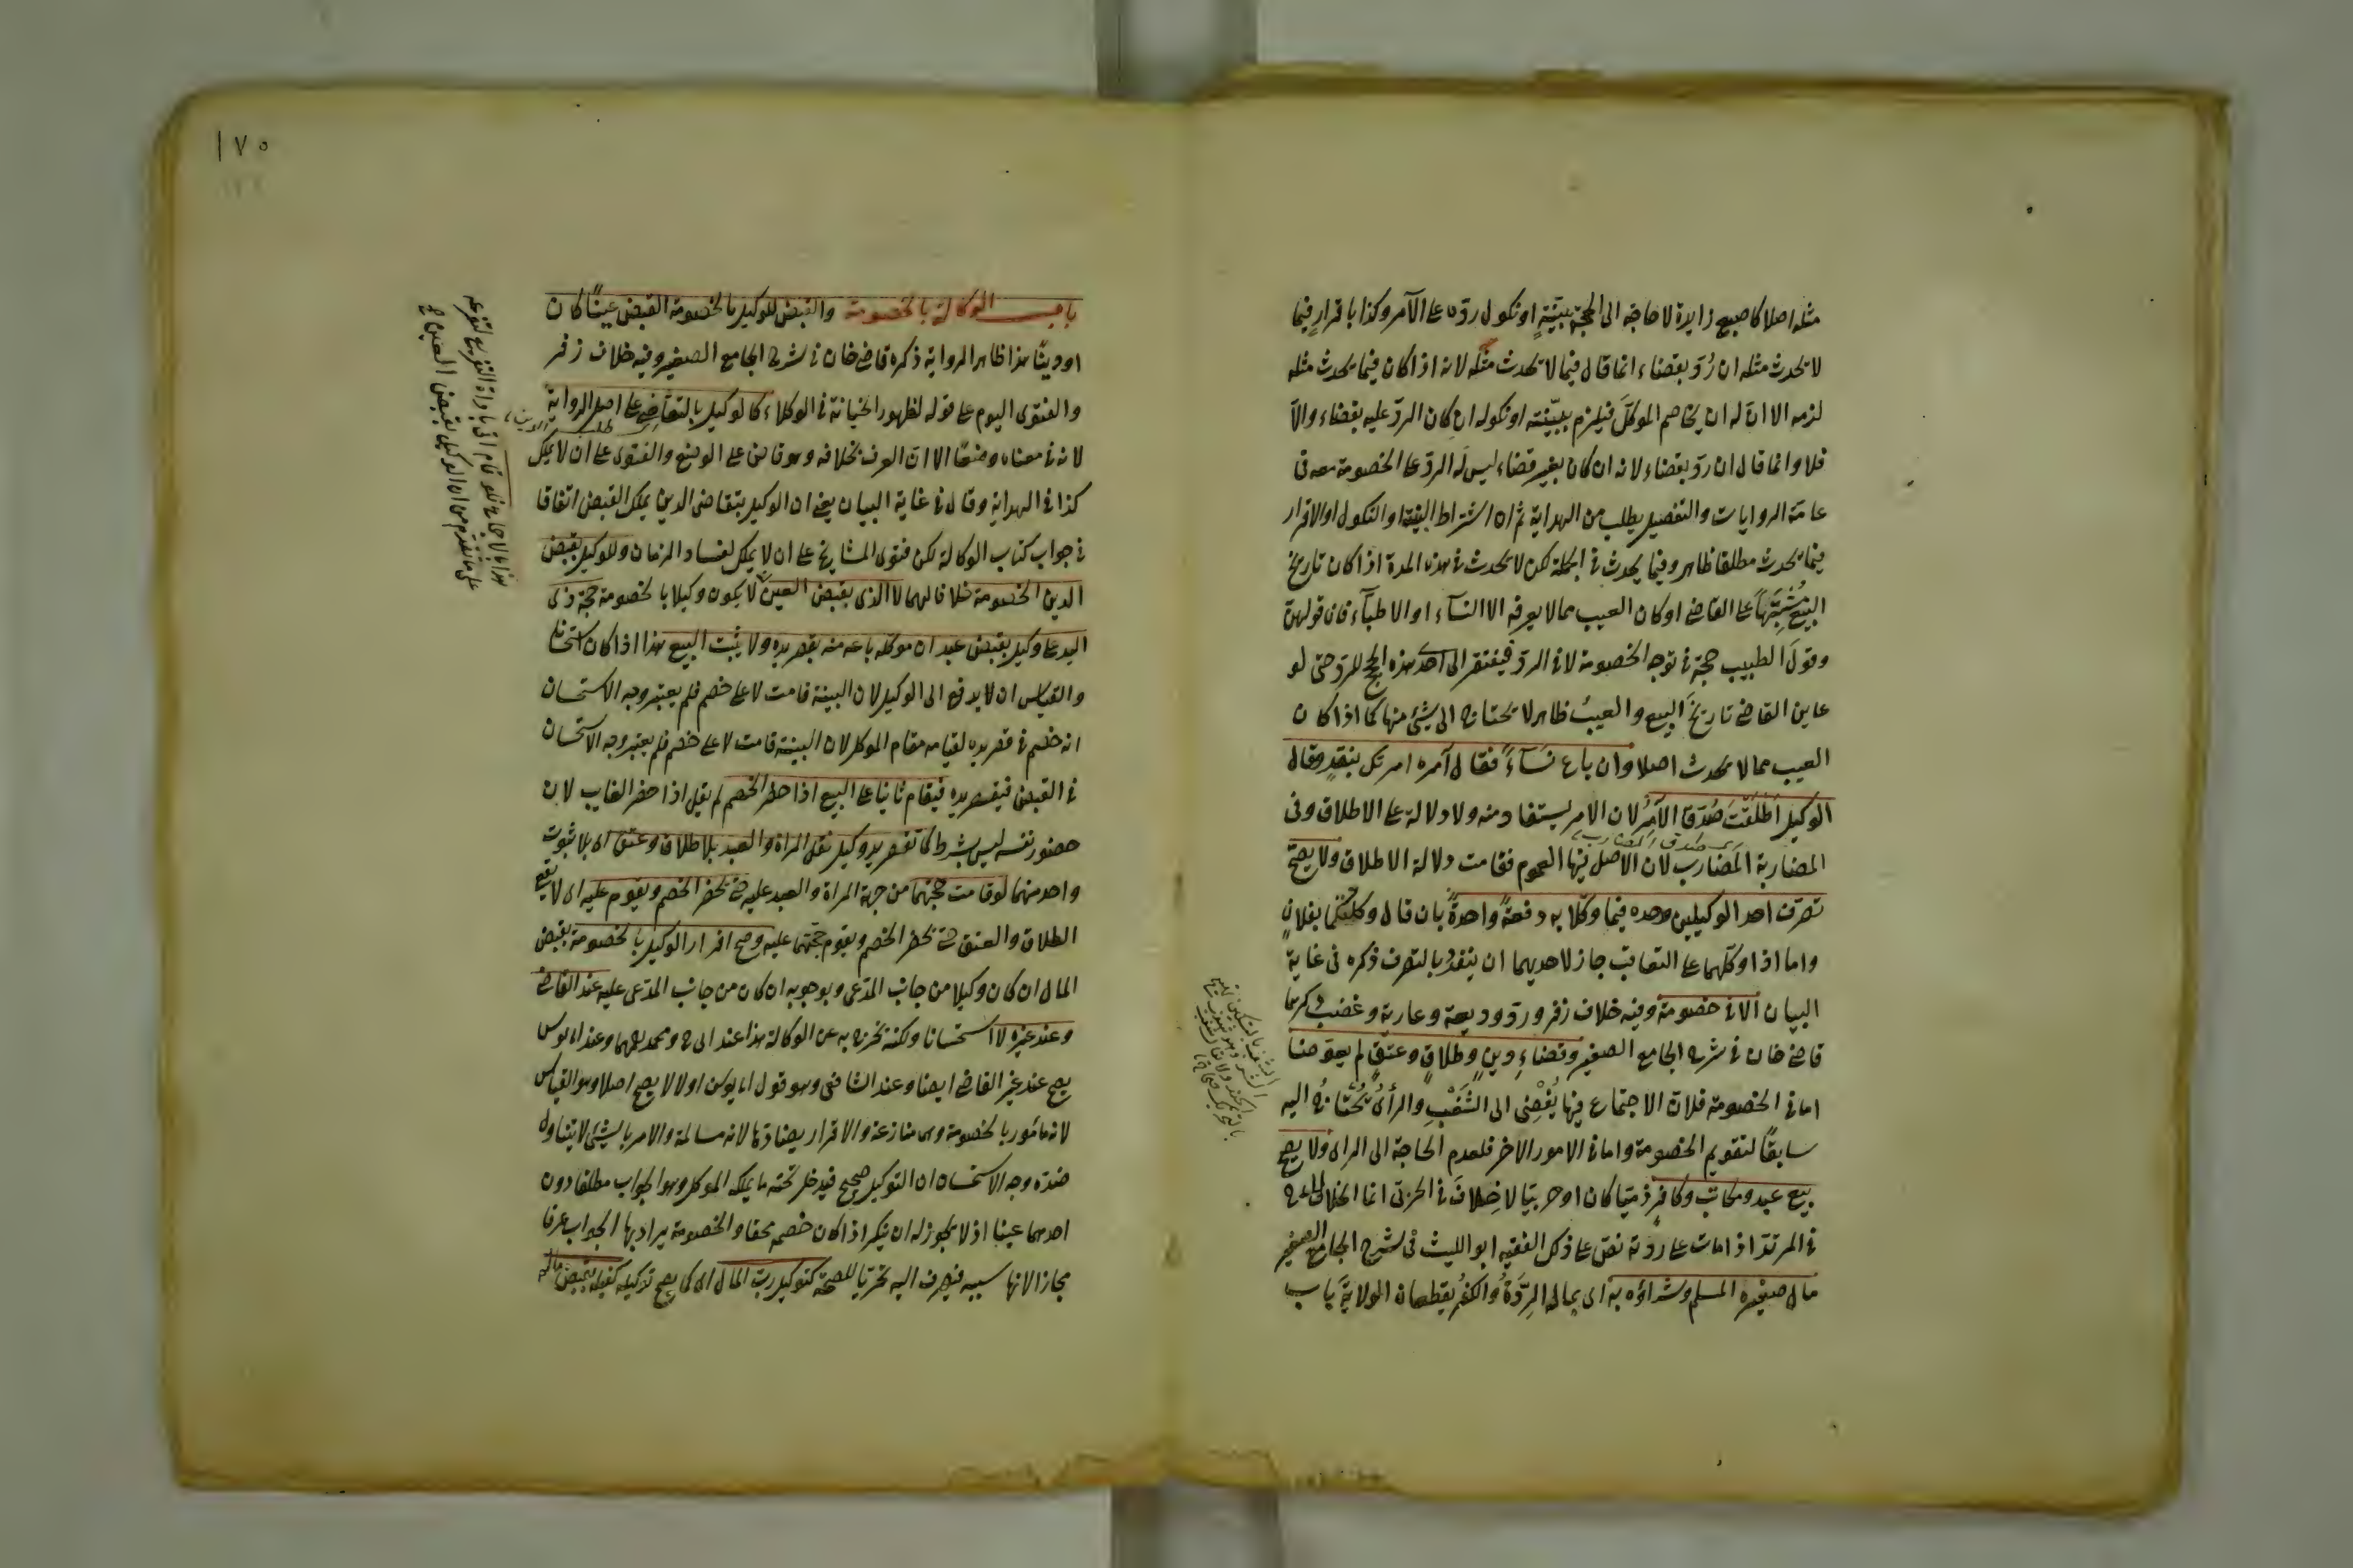 مثله اصلا كاصبع زايدة لا حاجة الى الحجة ببيّنةٍ او نكول ردّه على الآمر وكذا باقرارٍ فيما
لا يحدث مثله ان رُدّ بقضاء انما قال فيما لا يحدث مثله لانه اذا كان فيما يحدث مثله
لزمه الا انّ له ان يخاصم الموكّل فيلزم ببيّنته او نكوله ان كان الردّ عليه بقضاء والّا
فلا وانما قال ان ردّ بقضاء لانه ان كان بغير قضاء ليس له الردّ على الخصومة معه فى
عامة الروايات والتفصيل يطلب من الهداية ثم ان اشتراط البيّنة او النكول او الاقرار
فيما يحدث مطلقا ظاهر وفيما يحدث فى الجملة لكن لا يحدث فى هذه المدة اذا كان تاريخ
البيع مُشْتَبَهاً على القاضى او كان العيب مما لا يعرفه الا النسآء او الاطبآء فان قولهنّ
وقولَ الطبيب حجة فى توجه الخصومة لا فى الردّ فيفتقر الى احد هذه الحجج للردّ حتى لو
عاين القاضى تاريخَ البيع والعيبُ ظاهر لا يحتاج الى شئ منها كما اذا كان
العيب مما لا يحدث اصلا وان باع نسآءً فقال آمره امرتك بنقدٍ وقال
الوكيل اَطلقتَ صُدّق الآمِرُ لان الامر يستفاد منه ولا دلالة على الاطلاق وفى
صدق المضارب
المضاربة المُضارب لان الاصل فيها العموم فقامت دلالة الاطلاق ولا يصحّ
تصرّف احد الوكيلين وحده فيما وكّلا به دفعةً واحدةً بان قال وكلتكما بفلانٍ
واما اذا وكّلهما على التعاقب جاز لاحديهما ان ينفرد بالتصرف ذكره فى غاية
البيان الا فى خصومة وفيه خلاف زفر وردّ وديعة وعارية وغصب ذكرها
قاضى خان فى شرح الجامع الصغير وقضاءِ دينٍ وطلاقٍ وعتقٍ لم يعوّضا
اما فى الخصومة فلانّ الاجتماع فيها يُفْضِى الى الشَّغْبِ والرأىُ يُحتاجُ اليه
سابقاً لتقويم الخصومة واما فى الامور الاخر فلعدم الحاجة الى الراى ولا يصح
بيع عبد ومكاتب وكافرٍ ذميّا كان او حربيّا لا خِلافَ فى الحربى انما الخلاف
فى المرتد اذا مات على ردّته نصّ على ذلك الفقيه ابو الليث فى شرح الجامع الصغير
مال صغيره المسلم وشراؤه به اى بماله الرِّدَّةُ والكفرُ يقطعان الولايةَ باب
الشغب بالتسكين
باب الوكالة بالخصومة والقبض للوكيل بالخصومة القبض عينًا كان
او دينًا هذا ظاهر الرواية ذكره قاضى خان فى شرح الجامع الصغير وفيه خلاف زفر
والفتوى اليوم على قوله لظهور الخيانة فى الوكلاء كالوكيل بالتقاضى على اصل الرواية
طلب الدين
لانه فى معناه وضعًا الا انّ العرف بخلافه وهو قاض على الوضع والفتوى على ان لا يملك
كذا فى الهداية وقال فى غاية البيان يعنى ان الوكيل بتقاضى الدين يملك القبض اتفاقا
فى جواب كتاب الوكالة لكن فتوى المشايخ على ان لا يملك لفساد الزمان وللوكيل بقبض
الدين الخصومة خلافا لهما لا الذى بقبض العين لا يكون وكيلا بالخصومة حجة ذى
اليد على وكيل بقبض عبد ان موكله باعه منه بقصر يده ولا يثبت البيع هذا اذا كان استحسانا
والقياس ان لا يدفع الى الوكيل لان البينة قامت لا على خصم فلم يعتبر وجه الاستحسان
انه خصم فى قصر يده لقيامه مقام الموكل لان البينة قامت لا على خصم فلم يعتبر وجه الاستحسان
فى القبض فيقصر يده فيقام ثانيا على البيع اذا حضر الخصم لم يقل اذا حضر الغايب لان
حضور نفسه ليس بشرط كما تقصر يد وكيل نقل المراة والعبد بلا طلاق وعتق اى بلا ثبوت
واحد منهما لو قامت حجتهما من جهة المراة والعبد عليه حتى يحضر الخصم ويقوم عليه اى لا يقع
الطلاق والعتق حتى يحضر الخصم ويقوم حجتهما عليه وصح اقرار الوكيل بالخصومة بقبض
المال ان كان وكيلا من جانب المدّعى وبوجوبه ان كان من جانب المدّعى عليه عند القاضى
وعند غيره لا استحسانا ولكنه يخرج به عن الوكالة هذا عند ابى ح ومحمد رحمهما وعند ابى يوس
يصح عند غير القاضى ايضا وعند الشافعى وهو قول ابى يوسف اولا لا يصح اصلا وهو القياس
لانه مأمور بالخصومة وهى منازعة والاقرار يضادّها لانه مسالمة والامر بالشئ لا يتناول
ضدّه وجه الاستحسان ان التوكيل صحيح فيدخل تحته ما يملكه الموكل وهو الجواب مطلقا دون
احدهما عينا اذ لا يجوز له ان ينكر اذا كان خصمه محقا والخصومة يراد بها الجواب عرفا
مجازا لانها سببه فيصرف اليه تحريّا للصحة كتوكيل ربّ المال اى كما يصح توكيله كفيله بقبض ماله
١٧٥